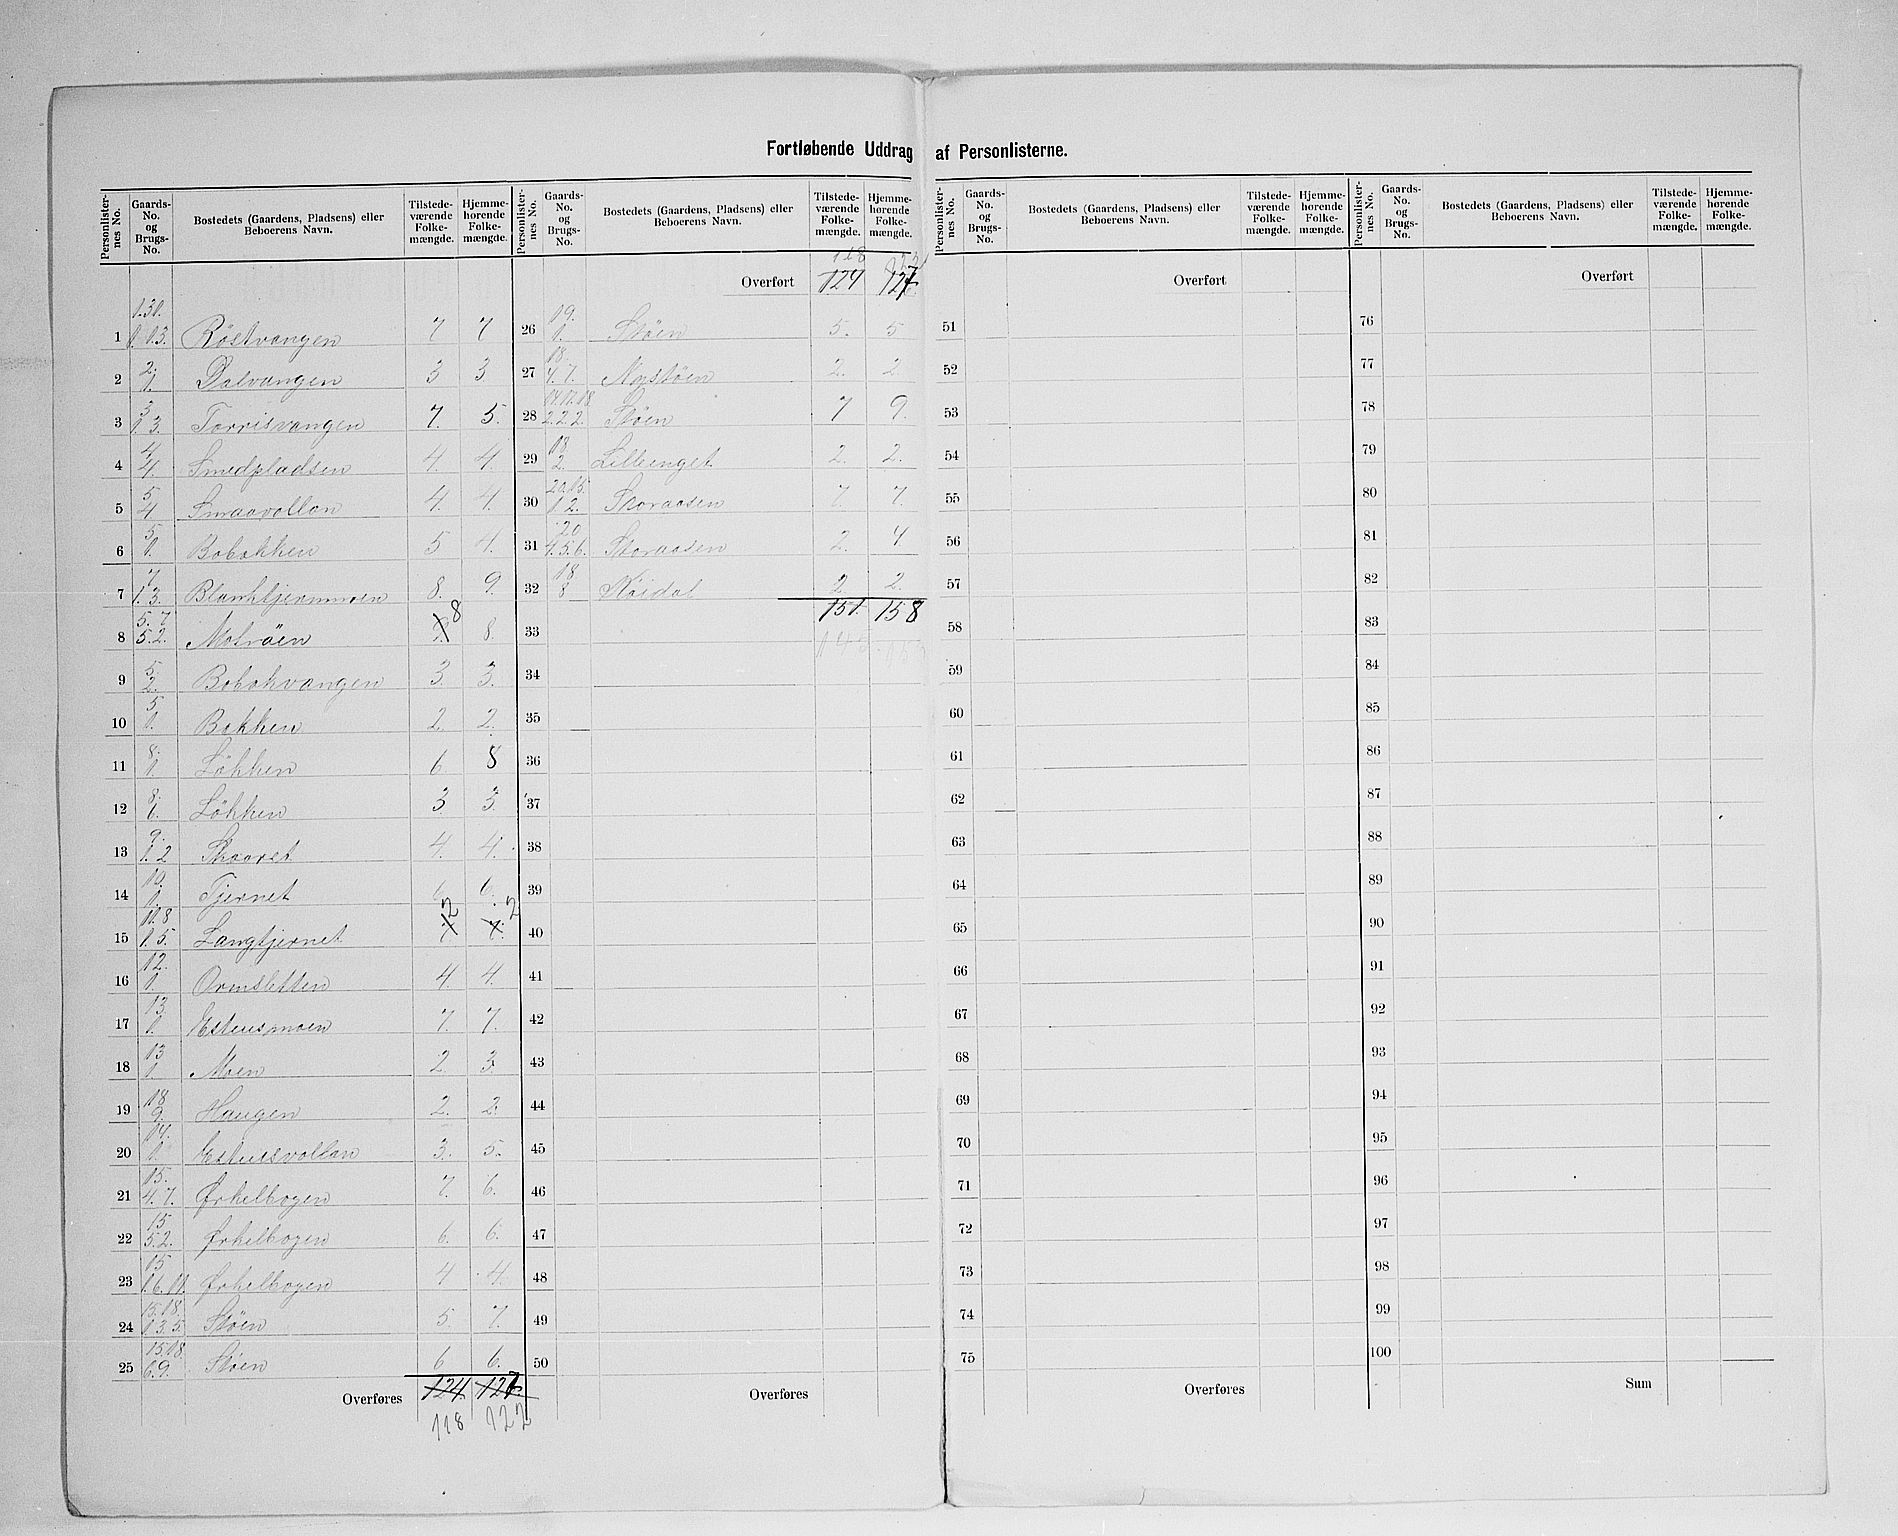 Fortløbende Uddrag af Personlisterne.
Personlisternes No. Gaards-No. og Brugs-No. Bostedets (Gaardens, Pladsens) eller Beboerens Navn. Tilstedeværende Folkemængde. Hjemmehørende Folkemængde.
1 Röstvangen 7 7
2 2. 1. Dalvangen 3 3
3 3 1. 3. Torrisvangen 7. 5.
4 4 4. Smedpladsen 4. 4.
5 5 4 Smaavollan 4. 4.
6 5 1. Bobakken 5 4.
7 7 1. 3. 8. 9.
8 5. 7 5. 2. Molröen 8 8.
9 5 2. Bobakvangen 3. 3.
10 5 1. Bakken 2 2.
11 8. 1. Lökken 6. 8
12 8. 6. Lökken 3 3.
13 9. 1. 2 Skaaret 4. 4.
14 10. 1. Tjernet 6 6.
15 11. 8 1. 5. Langtjernet 2 2
16 12. 1. Ormsletten 4. 4.
17 13. 1. Estensmoen 7. 7.
18 13 1. Moen 2 3.
19 18 9. Haugen 2. 2.
20 14. 1. Estensvollan 3. 5.
21 15. 4. 7. Ørkelbogen 7. 6.
22 15 5. 2. Ørkelbogen 6. 6.
23 15 1. 6. 11. Ørkelbogen 4 4.
24 15. 18. 1 3. 5. Stöen 5. 7.
25 15. 18. 6. 9. Stöen 6 6.
Overføres 124. 127.
118 122
Personlisternes No. Gaards-No. og Brugs-No. Bostedets (Gaardens, Pladsens) eller Beboerens Navn. Tilstedeværende Folkemængde. Hjemmehørende Folkemængde.
118 122
Overført 124 127
26 19. 1. Stöen 5. 5
27 18. 4. 7. Nystöen 2. 2.
28 14. 17. 18. 2. 2. 2. Stöen 7 9.
29 18 2. Lillenget 2. 2.
30 20. 15. 1 2. Storaasen 7. 7.
31 20 4. 5. 6. Storaasen 2. 4
32 18 8 Nöidal 2 2.
33 151. 158
145 153
34
35
36
37
38
39
40
41
42
43
44
45
46
47
48
49
50
Overføres
Personlisternes No. Gaards-No. og Brugs-No. Bostedets (Gaardens, Pladsens) eller Beboerens Navn. Tilstedeværende Folkemængde. Hjemmehørende Folkemængde.
Overført
51
52
53
54
55
56
57
58
59
60
61
62
63
64
65
66
67
68
69
70
71
72
73
74
75
Overføres
Personlisternes No. Gaards-No. og Brugs-No. Bostedets (Gaardens, Pladsens) eller Beboerens Navn. Tilstedeværende Folkemængde. Hjemmehørende Folkemængde.
Overført
76
77
78
79
80
81
82
83
84
85
86
87
88
89
90
91
92
93
94
95
96
97
98
99
100
Sum